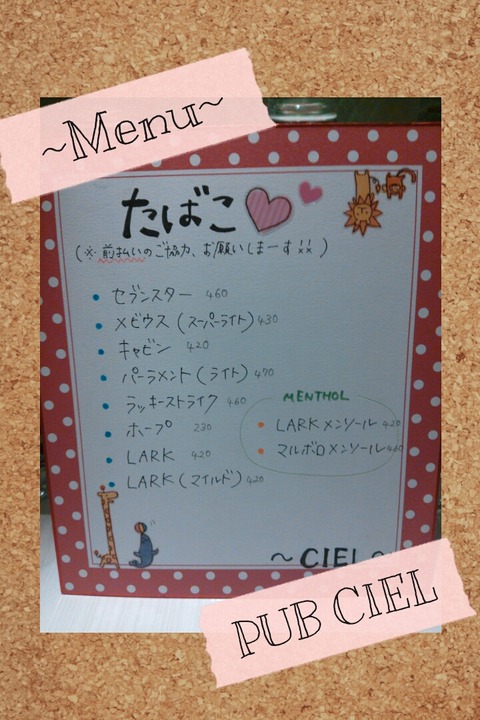 ~Menu~
たばこ
(※前払いのご協力、お願いしまーす!!)
セブンスター 460
メビウス(スーパーライト) 430
キャビン 420
パーラメント(ライト) 470
ラッキーストライク 460
ホープ 230
LARK 420
LARK(マイルド) 420
MENTHOL
LARKメンソール 420
マルボロメンソール 460
~CIEL~
PUB CIEL